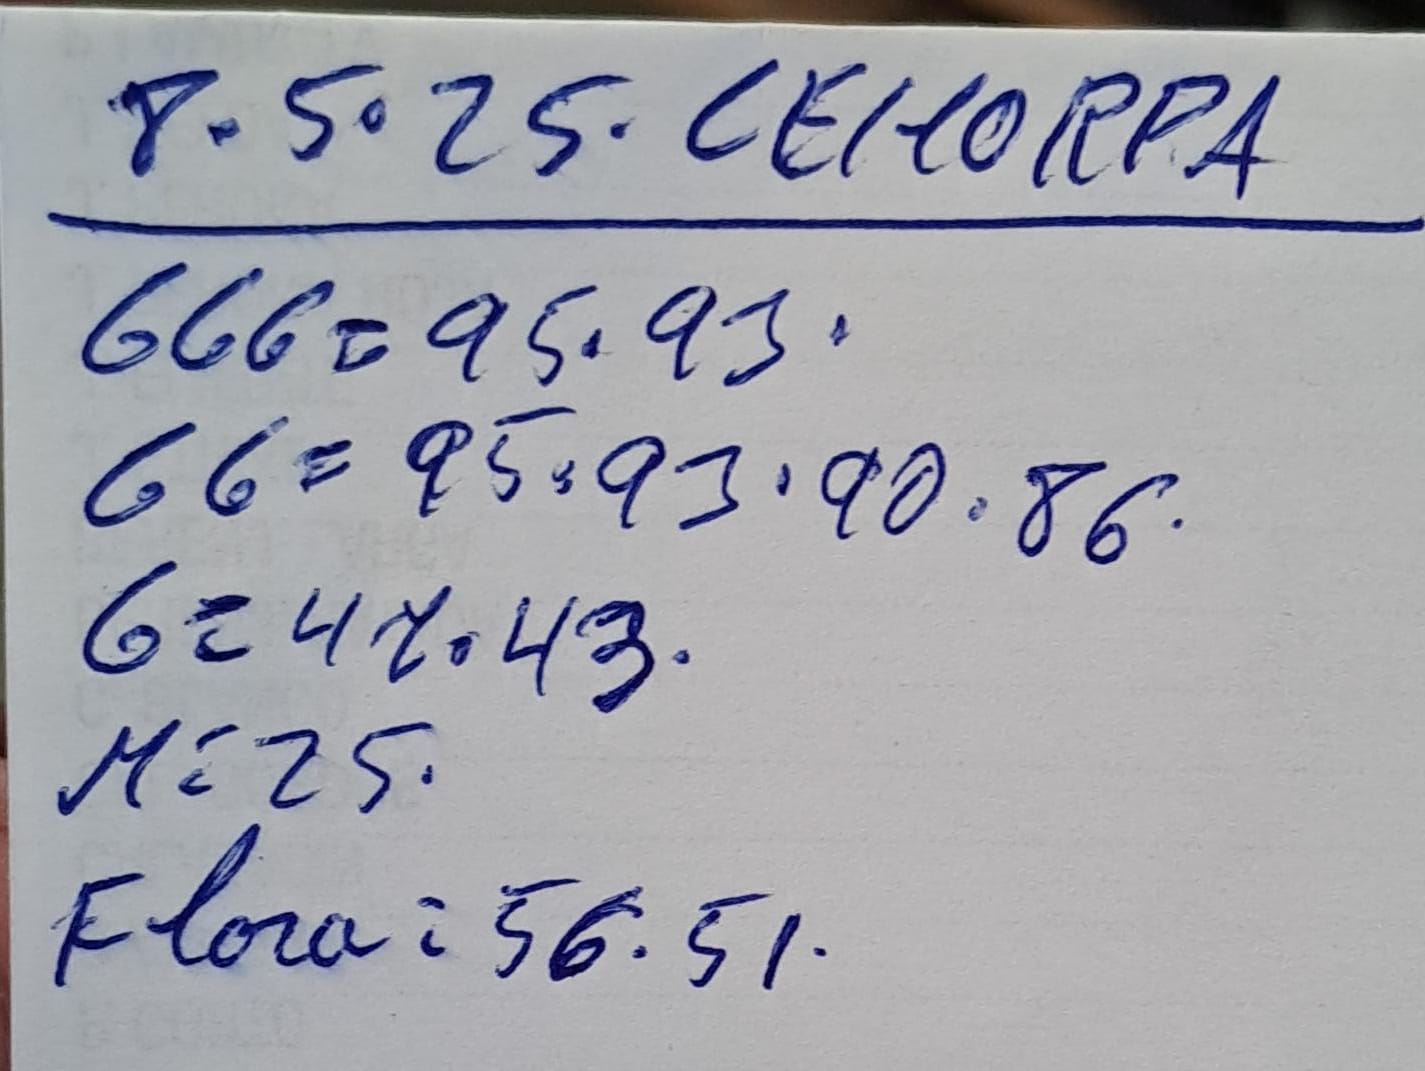 8.5.25. CEHORPA
666=95.93.
66=95.93.90.86.
6=47.43.
M=25.
Flora=56.51.